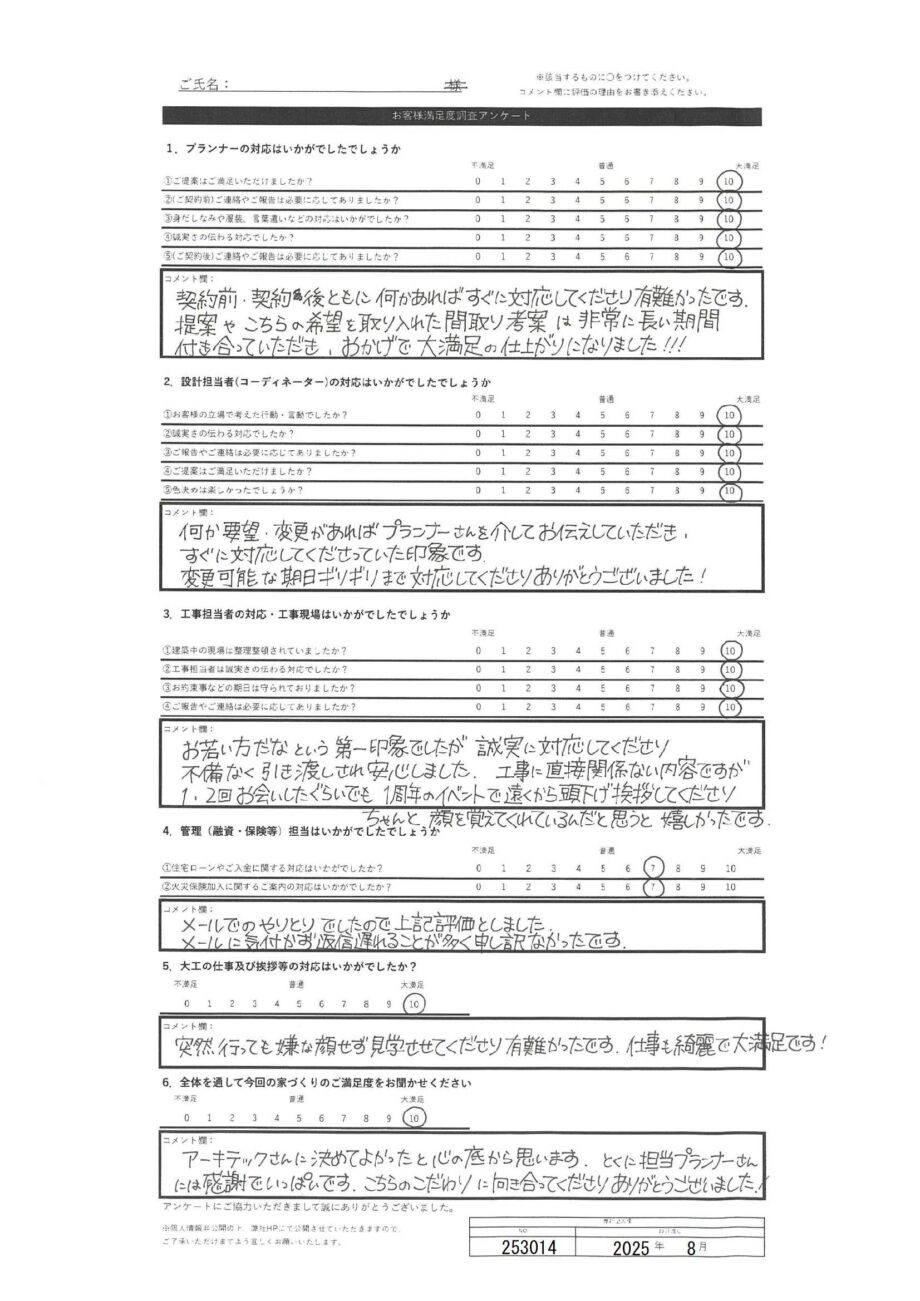 ご氏名： 様
※該当するものに○をつけてください。
コメント欄に評価の理由をお書き添えください。
お客様満足度調査アンケート
1．プランナーの対応はいかがでしたでしょうか
不満足 普通 大満足
①ご提案はご満足いただけましたか？ 0 1 2 3 4 5 6 7 8 9 10
②(ご契約前)ご連絡やご報告は必要に応じてありましたか？ 0 1 2 3 4 5 6 7 8 9 10
③身だしなみや服装、言葉遣いなどの対応はいかがでしたか？ 0 1 2 3 4 5 6 7 8 9 10
④誠実さの伝わる対応でしたか？ 0 1 2 3 4 5 6 7 8 9 10
⑤(ご契約後)ご連絡やご報告は必要に応じてありましたか？ 0 1 2 3 4 5 6 7 8 9 10
コメント欄：
契約前・契約後ともに何かあればすぐに対応してくださり有難かったです.
提案やこちらの希望を取り入れた間取り考案は非常に長い期間
付き合っていただき、おかげで大満足の仕上がりになりました!!!
2．設計担当者(コーディネーター)の対応はいかがでしたでしょうか
不満足 普通 大満足
①お客様の立場で考えた行動・言動でしたか？ 0 1 2 3 4 5 6 7 8 9 10
②誠実さの伝わる対応でしたか？ 0 1 2 3 4 5 6 7 8 9 10
③ご報告やご連絡は必要に応じてありましたか？ 0 1 2 3 4 5 6 7 8 9 10
④ご提案はご満足いただけましたか？ 0 1 2 3 4 5 6 7 8 9 10
⑤色決めは楽しかったでしょうか？ 0 1 2 3 4 5 6 7 8 9 10
コメント欄：
何か要望・変更があればプランナーさんを介してお伝えしていただき、
すぐに対応してくださっていた印象です.
変更可能な期日ギリギリまで対応してくださりありがとうございました!
3．工事担当者の対応・工事現場はいかがでしたでしょうか
不満足 普通 大満足
①建築中の現場は整理整頓されていましたか？ 0 1 2 3 4 5 6 7 8 9 10
②工事担当者は誠実さの伝わる対応でしたか？ 0 1 2 3 4 5 6 7 8 9 10
③お約束事などの期日は守られておりましたか？ 0 1 2 3 4 5 6 7 8 9 10
④ご報告やご連絡は必要に応じてありましたか？ 0 1 2 3 4 5 6 7 8 9 10
コメント欄：
お若い方だなという第一印象でしたが 誠実に対応してくださり
不備なく引き渡しされ安心しました. 工事に直接関係ない内容ですが
1・2回お会いしたぐらいでも 1周年のイベントで遠くから頭下げ挨拶してくださり
ちゃんと顔を覚えてくれているんだと思うと嬉しかったです.
4．管理（融資・保険等）担当はいかがでしたでしょうか
不満足 普通 大満足
①住宅ローンやご入金に関する対応はいかがでしたか？ 0 1 2 3 4 5 6 7 8 9 10
②火災保険加入に関するご案内の対応はいかがでしたか？ 0 1 2 3 4 5 6 7 8 9 10
コメント欄：
メールでのやりとりでしたので上記評価としました.
メールに気付かず返信遅れることが多く申し訳なかったです.
5．大工の仕事及び挨拶等の対応はいかがでしたか？
不満足 普通 大満足
0 1 2 3 4 5 6 7 8 9 10
コメント欄：
突然行っても嫌な顔せず見学させてくださり有難かったです. 仕事も綺麗で大満足です!
6．全体を通して今回の家づくりのご満足度をお聞かせください
不満足 普通 大満足
0 1 2 3 4 5 6 7 8 9 10
コメント欄：
アーキテックさんに決めてよかったと心の底から思います. とくに担当プランナーさん
には感謝でいっぱいです. こちらのこだわりに向き合ってくださりありがとうございました!!
アンケートにご協力いただきまして誠にありがとうございました。
※個人情報非公開の上、弊社HPにて公開させていただきますので、
ご了承いただけますよう宜しくお願いいたします。
NO
253014 2025年 8月